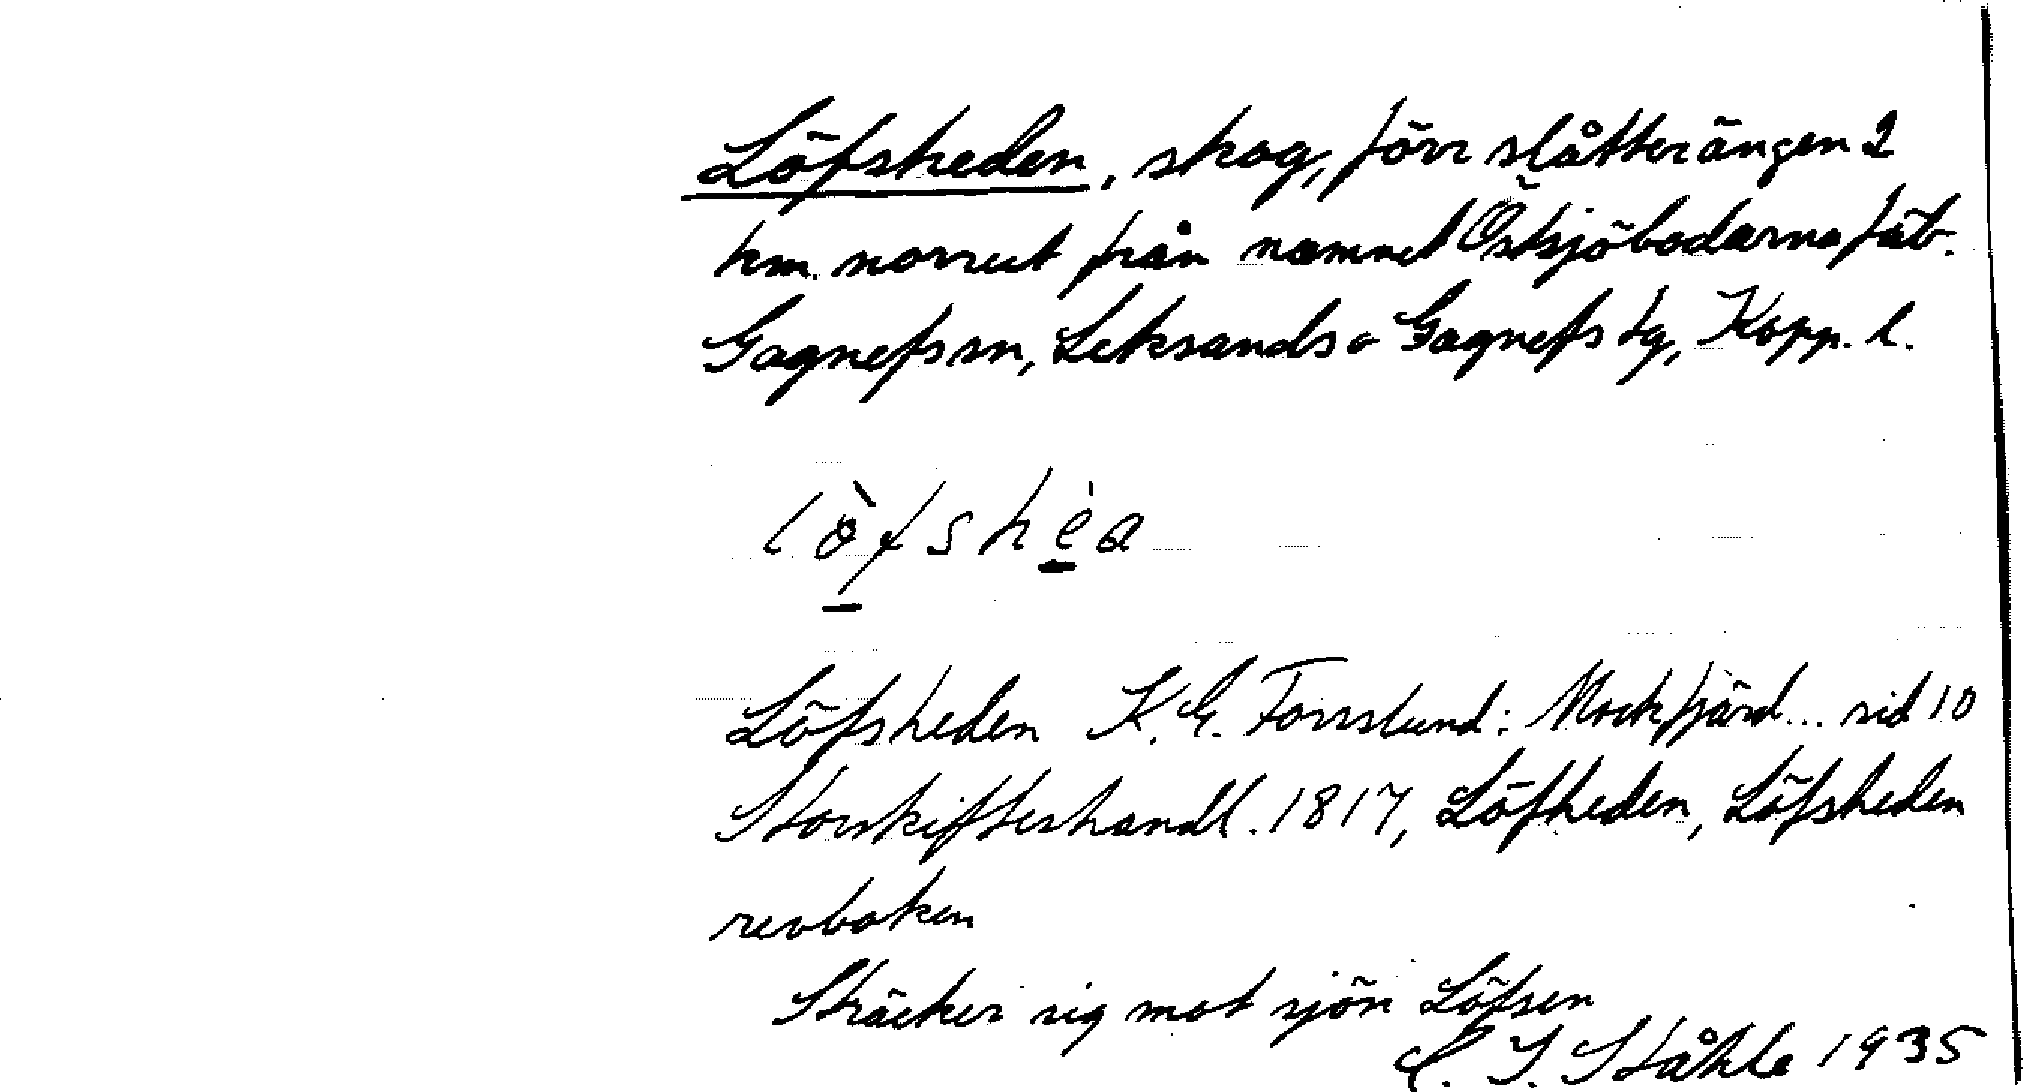 Löfsheden, skog, förr slåtterängen 2
km. norrut från namnet Östsjöbodarna fäb.
Gagnefs sn, Leksands o Gagnefs tg, Kopp. l.
lö̀fshèa
Löfsheden K. E. Forsslund: Mockfjärd... sid 10
Storskifteshandl. 1817, Löfheden, Löfsheden
revboken
Sträcker sig mot sjön Löfsen
C. I. Ståhle 1935